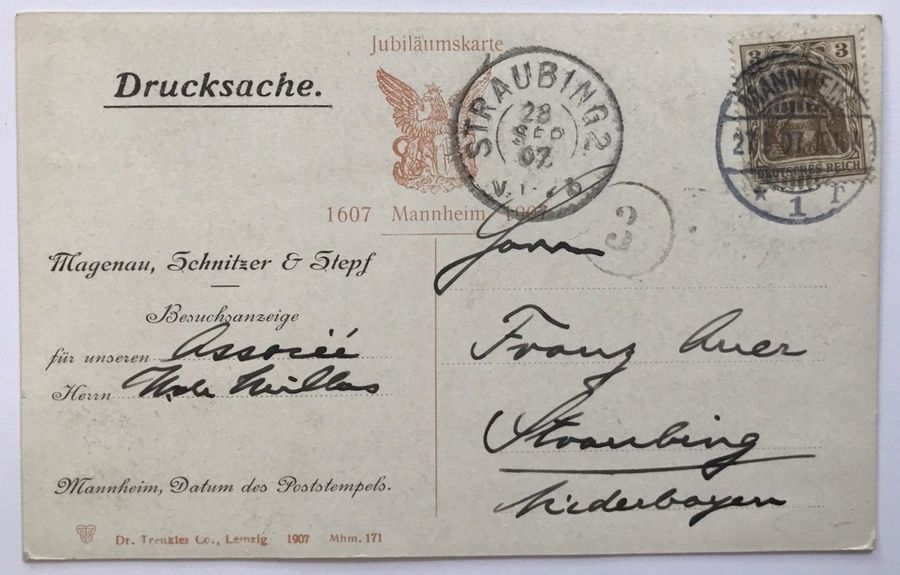 Jubiläumskarte
Drucksache.
1607 Mannheim 1907
STRAUBING 2
28
SEP
07
3 3
MANNHEIM
DEUTSCHES REICH
* 1
3
Magenau, Schnitzer & Stepf
Besuchsanzeige
für unseren Associé
Herrn
Mannheim, Datum des Poststempels.
Dr. Trenkler Co., Leipzig 1907 Mhm. 171
Herrn
Franz Auer
Straubing
Niederbayern